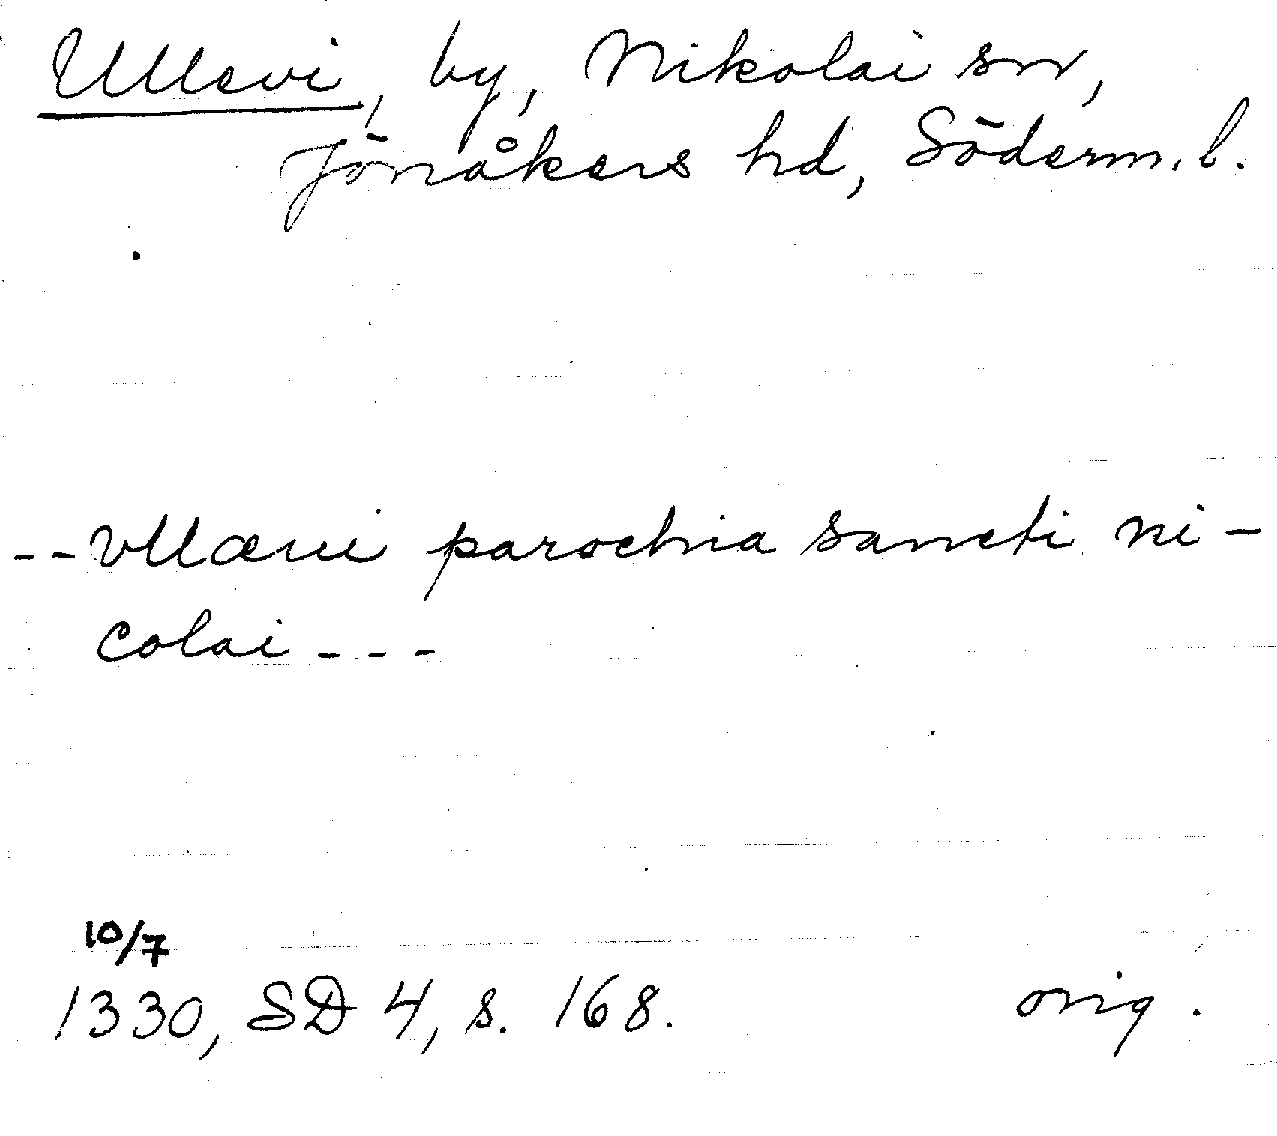 Ullevi, by, Nikolai sn,
Jönåkers hd, Söderm. l.
-- vllæui parochia sancti ni-
colai ---
10/7
1330, SD 4, s. 168. orig.